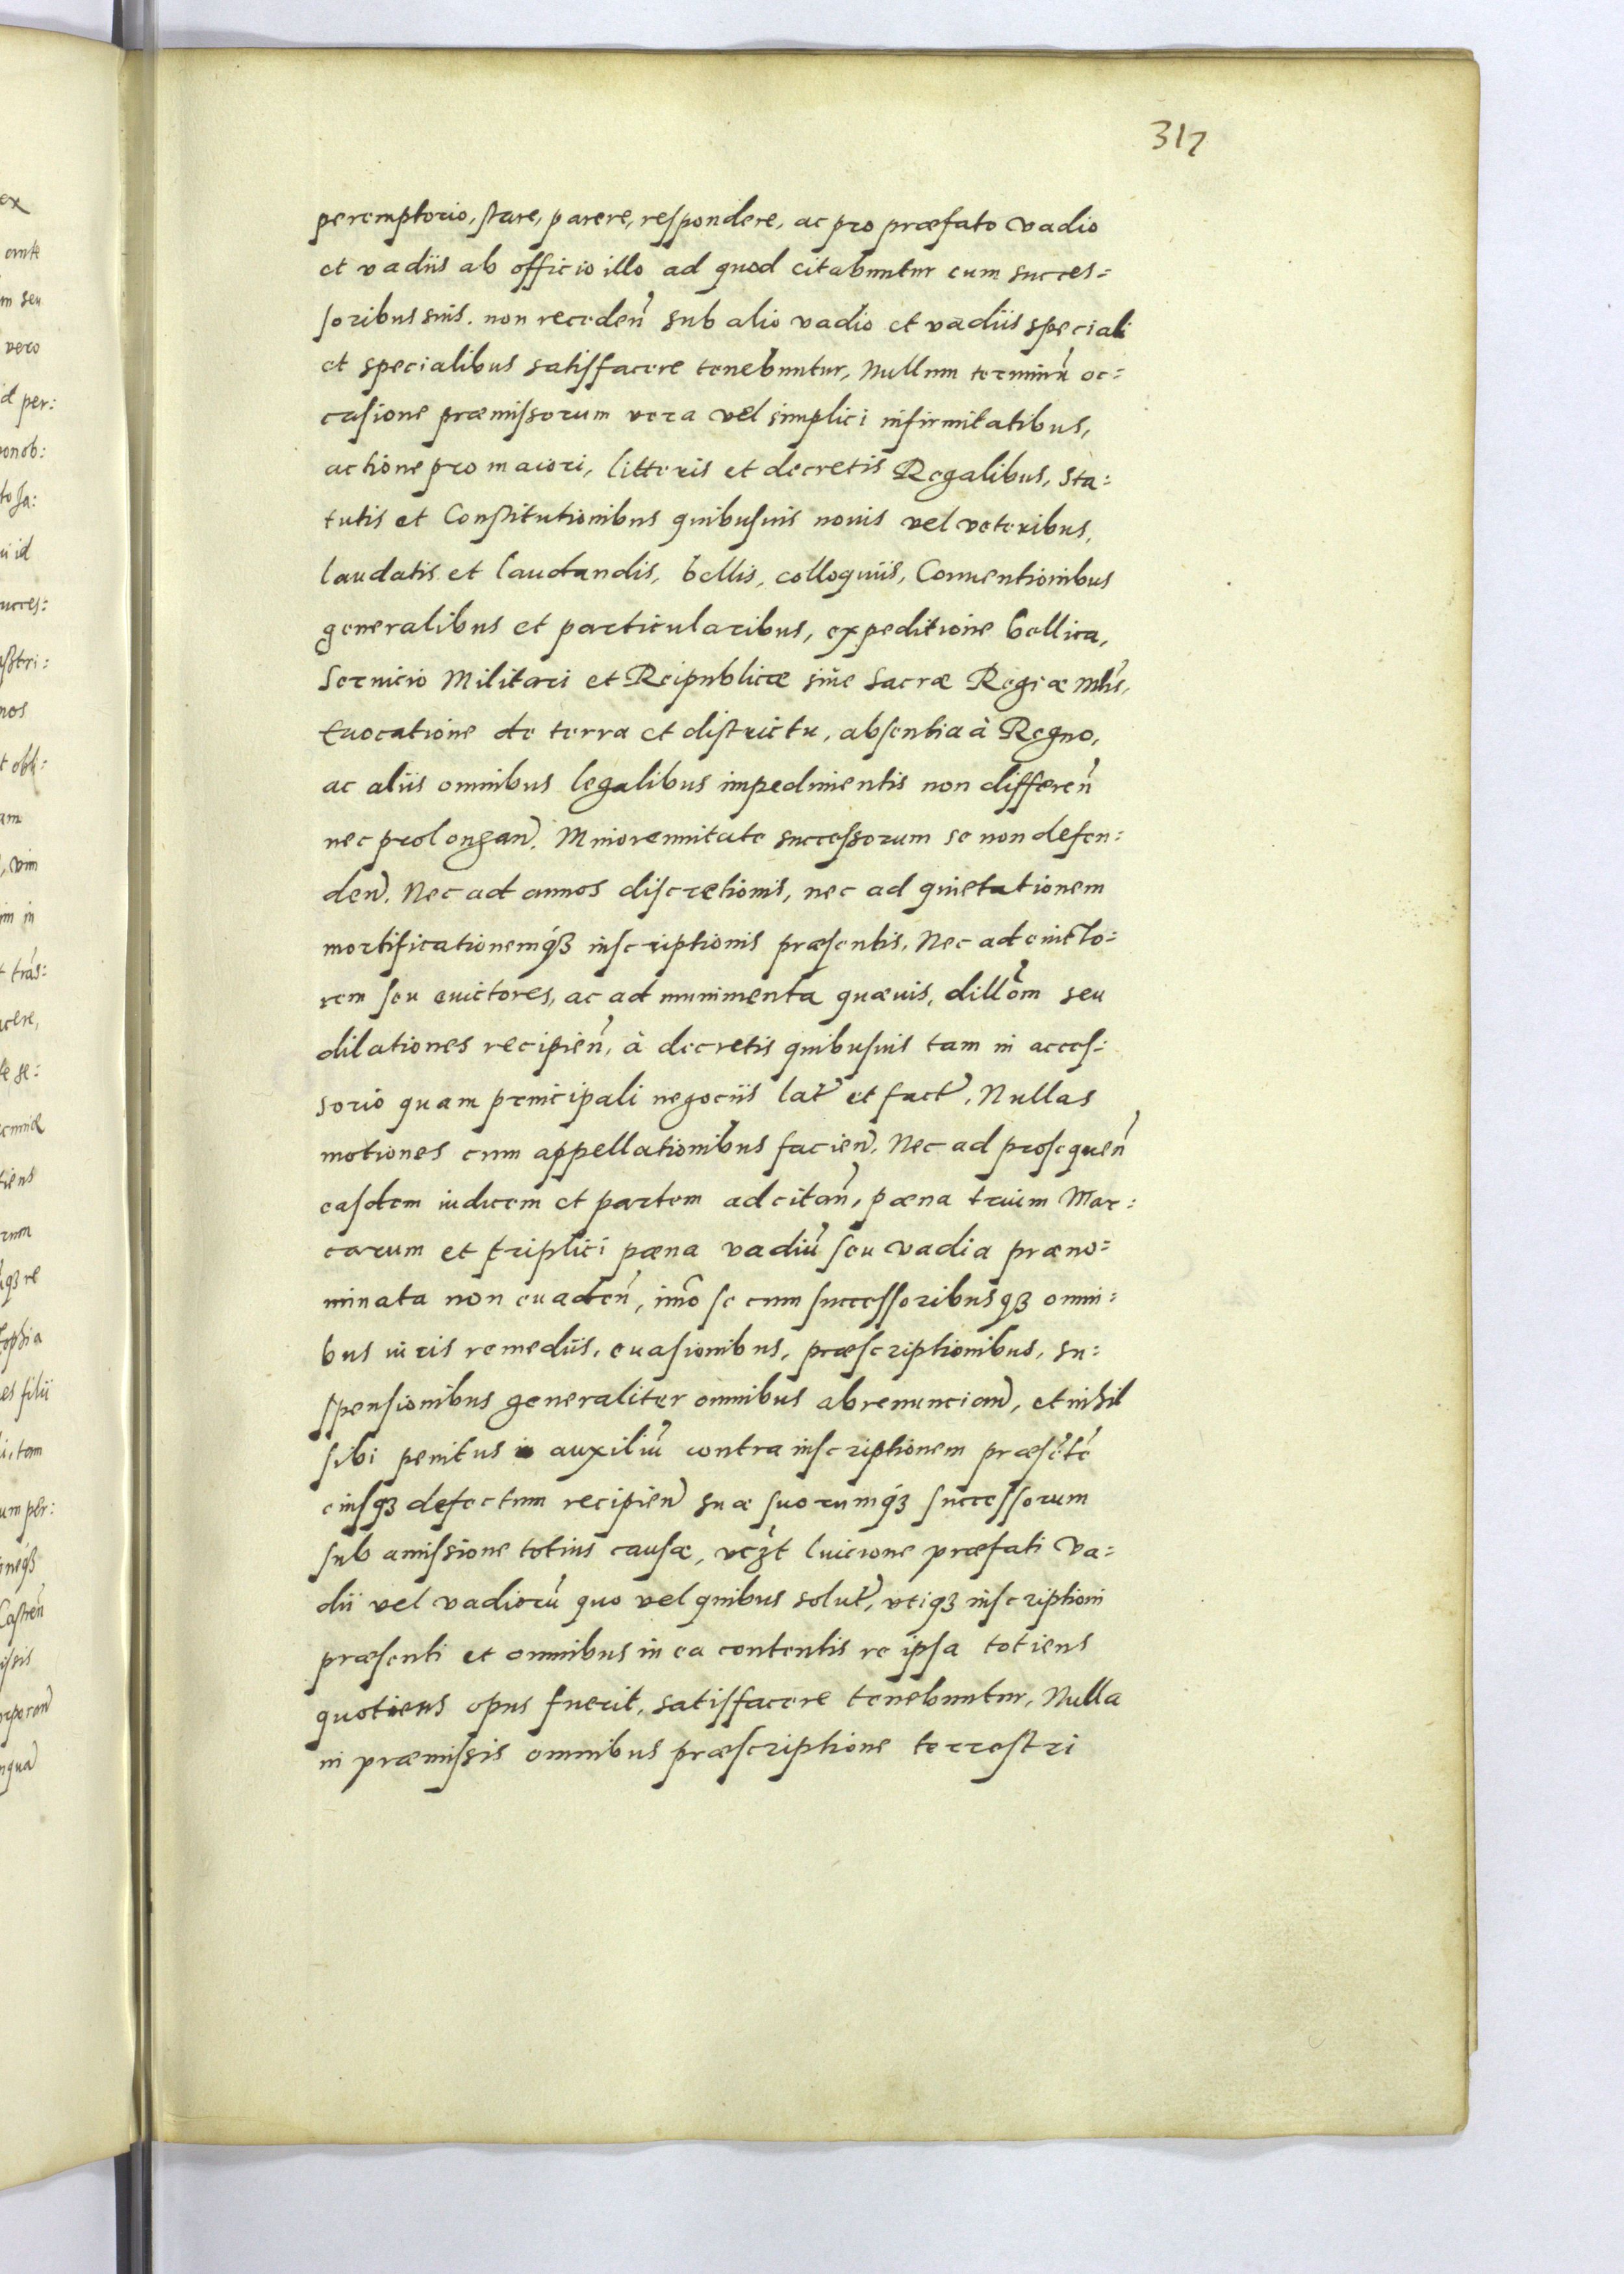 317
peremptorio, stare, parere, respondere, ac pro præfato vadio
et vadiis ab officio illo ad quod citabuntur cum succes=
soribus suis. non receden̄ sub alio vadio et vadiis speciali
et specialibus satisfacere tenebuntur, Nullum terminū oc=
casione præmissorum vera vel simplici infirmitatibus,
actione pro maiori, litteris et decretis Regalibus, Sta=
tutis et Constitutionibus quibusuis nouis vel veteribus,
laudatis et laudandis, bellis, colloquiis, Conuentionibus
generalibus et particularibus, expeditione bellica,
Seruicio Militari et Reipublicæ siue Sacræ Regiæ Mtis,
Euocatione de terra et districtu, absentia à Regno,
ac aliis omnibus legalibus impedimentis non differen̄
nec prolongan̄. Minorennitate successorum se non defen=
den̄. Nec ad annos discretionis, nec ad quietationem
mortificationemqꝫ inscriptionis præsentis, Nec ad euicto=
rem seu euictores, ac ad munimenta quæuis, dillōm seu
dilationes recipien̄, à decretis quibusuis tam in acces=
sorio quam principali negociis lat̄ et fact̄, Nullas
motiones cum appellationibus facien̄, Nec ad prosequen̄
easdem iudicem et partem ad citan̄, pæna trium Mar=
carum et triplici pæna vadiū seu vadia præno=
minata non euaden̄, imo se cum successoribusqꝫ omni=
bus iuris remediis, euasionibus, præscriptionibus, su=
spensionibus generaliter omnibus abrenuncian̄, et nihil
sibi penitus in auxiliū contra inscriptionem præsētē
eiusqꝫ defectum recipien̄ suæ suorumqꝫ successorum
sub amissione totius causæ, vczt luicione præfati va=
dii vel vadiorū quo vel quibus solut̄, vtiqꝫ inscriptioni
præsenti et omnibus in ea contentis re ipsa totiens
quotiens opus fuerit, satisfacere tenebuntur, Nulla
in præmissis omnibus præscriptione terrestri